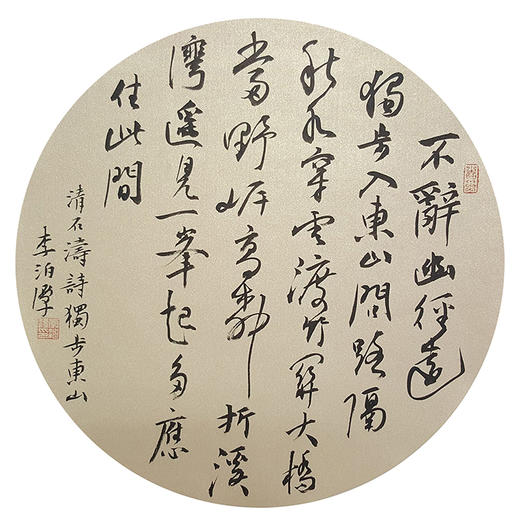 不辭幽徑遠
獨步入東山問路隔
秋水穿雲渡竹關大橋
當野岸高柳折溪
灣遙見一峯起多應
住此間
清石濤詩獨步東山
李泊